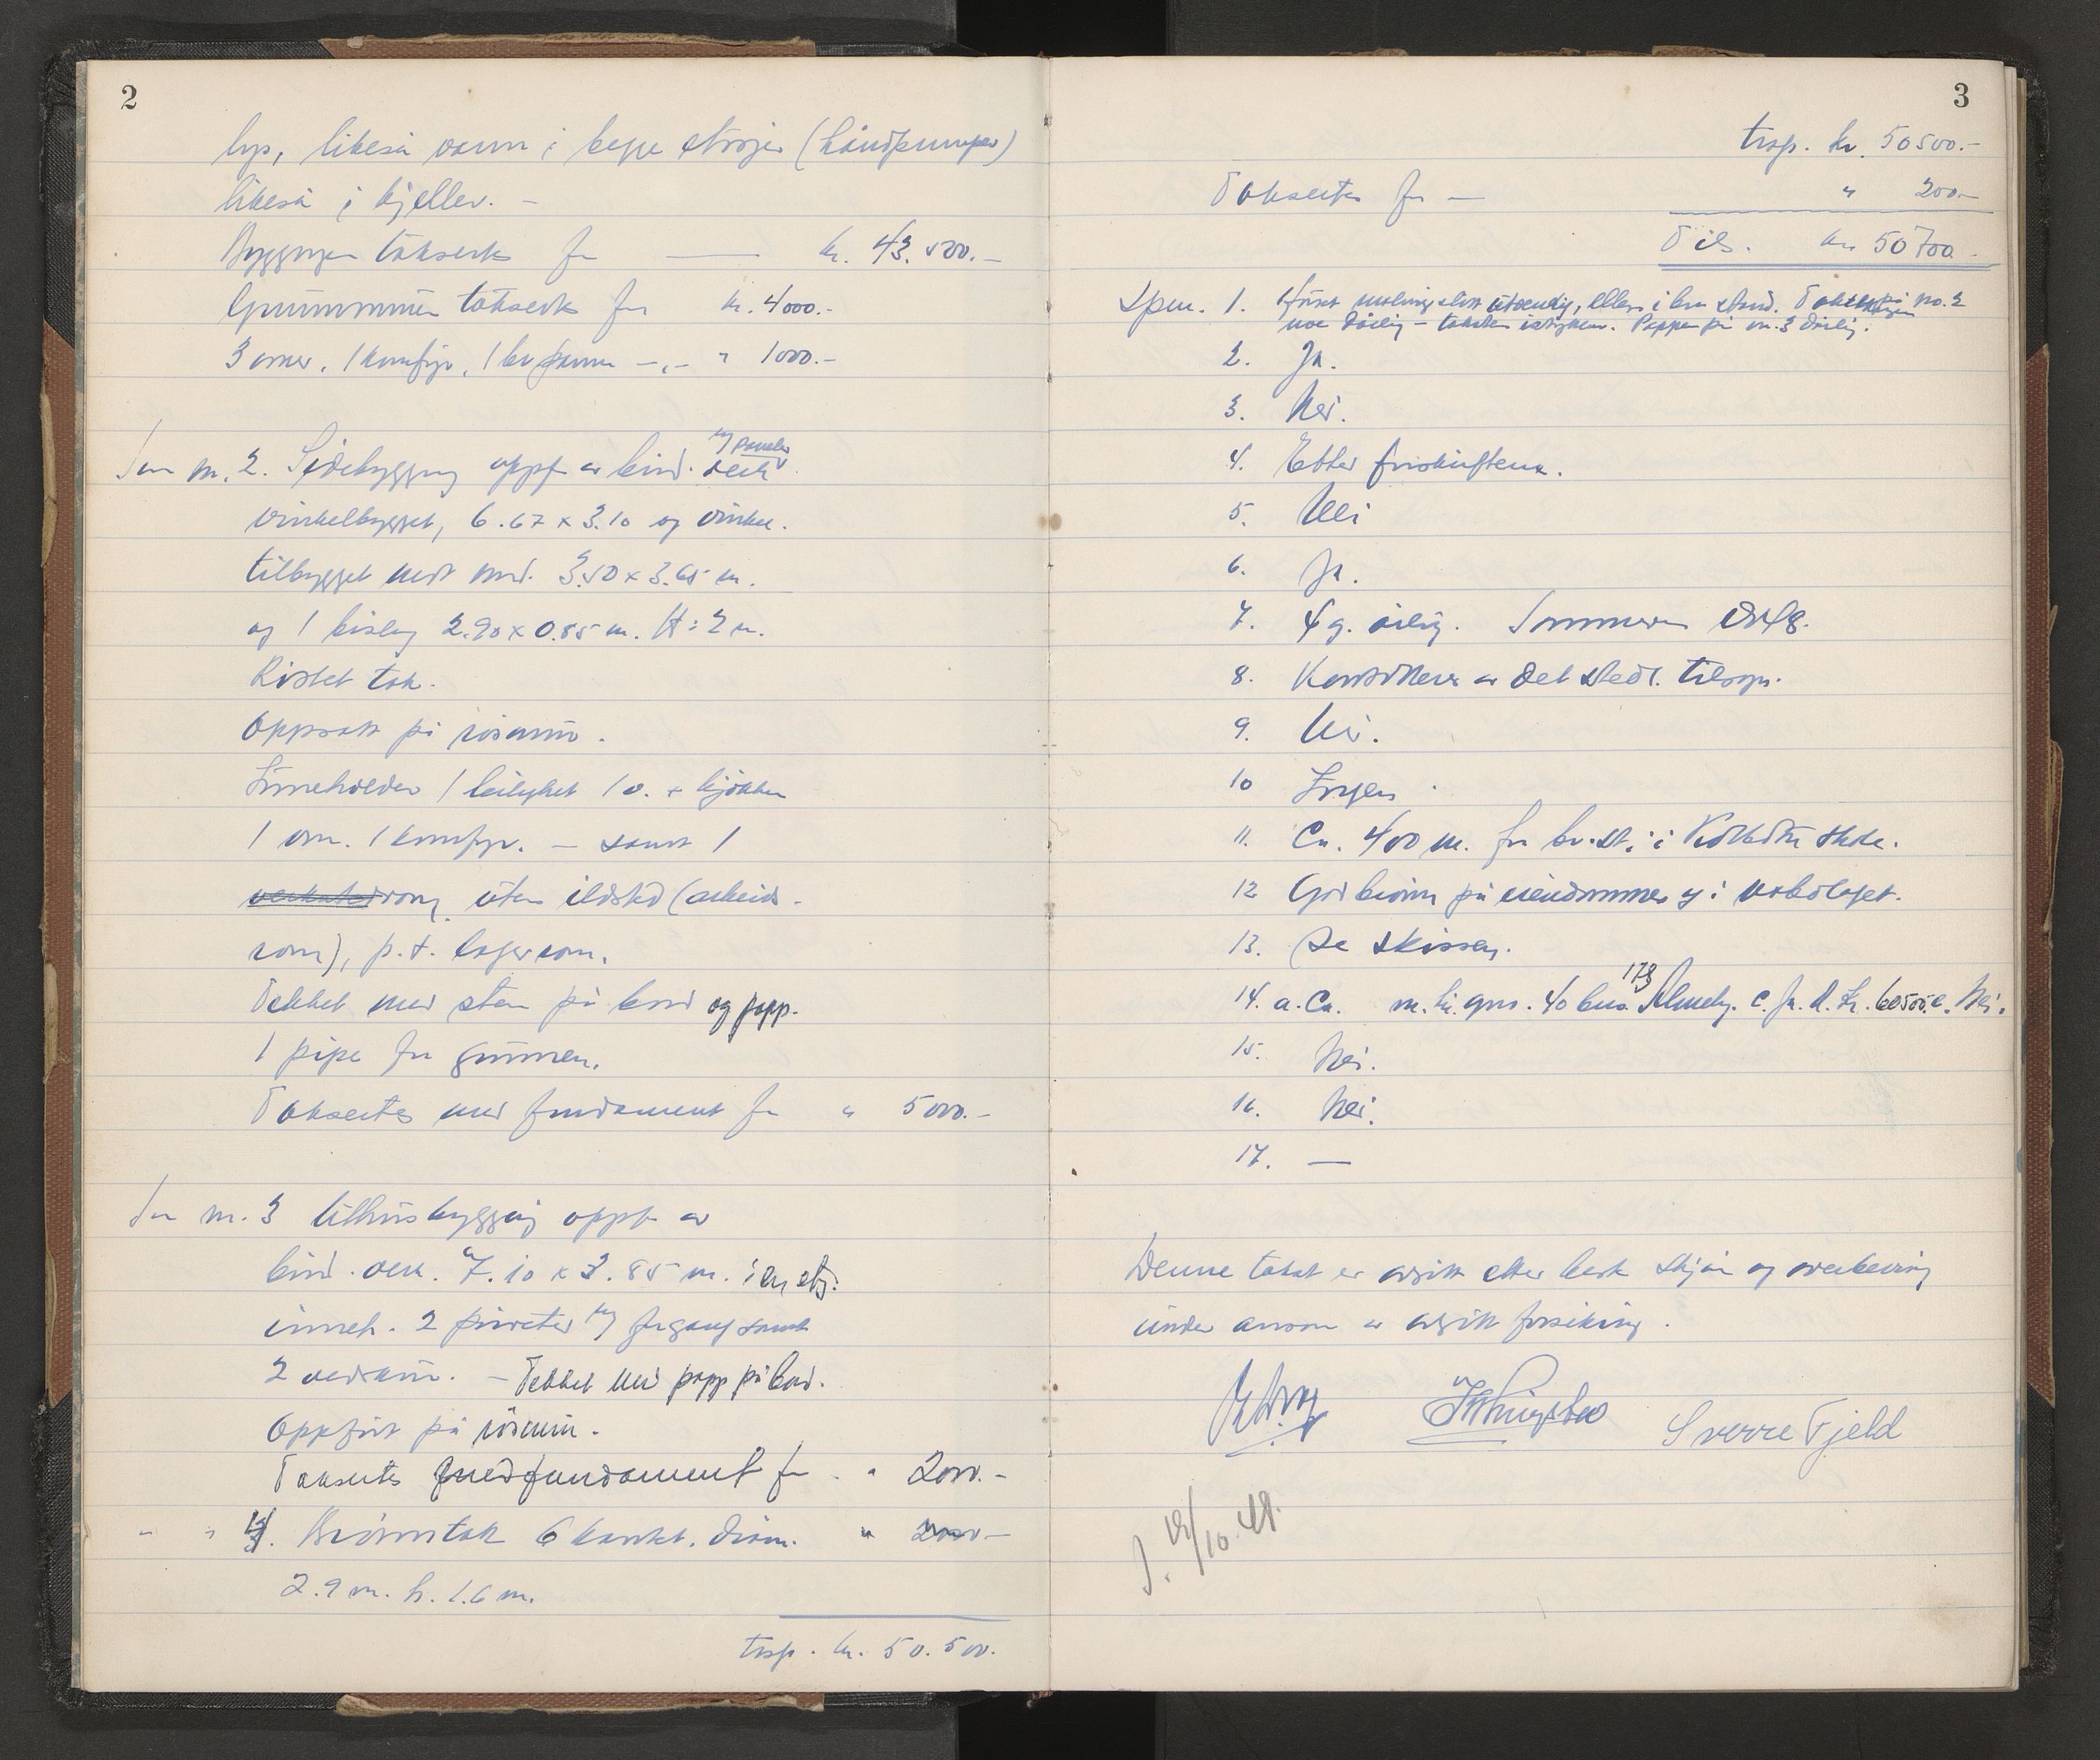 2
lys, likeså vann i begge etasjer (håndpumper)
likeså i kjeller. -
Bygningen takseres for — kr. 43.500.-
Grunnmuren takseres for kr. 4000.-
3 ovner, 1 komfyr, 1 br. panne -"- " 1000.-
nr. 2. Sidebygning oppf. av bind. verk og panelt
vinkelbygget, 6.67 x 3.10 og vinkel.
tilbygget mot nord. 3.50 x 3.65 m.
og 1 bislag 2.90 x 0.85 m. H = 2 m.
Ristet tak.
Oppsatt på råsmur.
Inneholder 1 leilighet 1 v. + kjøkken
1 ovn. 1 komfyr. - samt 1
rom, uten ildsted (arbeids-
rom), p.t. lagerrom.
Tekket med sten på bord og papp.
1 pipe fra grunnen.
Takseres med fundament for " 5000.-
nr. 3 Uthusbygning oppf. av
bind. verk. 7.10 x 3.85 m. i en etg.
inneh. 2 priveter og forgang samt
2 vedrum. - Tekket med papp på bord.
Oppført på råsmur.
Takseres med fundament for " 2000.-
" " 4. Brønntak 6 kantet. diam. "
2.9 m. h. 1.6 m.
trsp. kr. 50.500.
3
trsp. kr. 50500.-
Takseres for — " 200.-
Tils. kr. 50700.-
Spm. 1. maling slitt utvendig, ellers i bra stand. på no. 2
noe dårlig - taksten istykker. Pappen på nr. 3 dårlig.
2. Ja.
3. Nei.
4. Etter forskriftene.
5. Nei
6. Ja.
7. 4 g. årlig. Sommeren 1948.
8. Kontrolleres av det stedl. tilsyn.
9. Nei.
10 Ingen.
11. Ca. 400 m. fra br. st. i Kolbotn
12 God brønn på eiendommen og i nabolaget.
13. Se skissen.
14. a. Ca. m. 40 178 c. Ja. d. Kr. 60500 e. Nei.
15. Nei.
16. Nei.
17. —
Denne takst er avgitt etter beste skjøn og overbevisning
under ansvar av avgitt forsikring.
Sverre Fjeld
10.48.